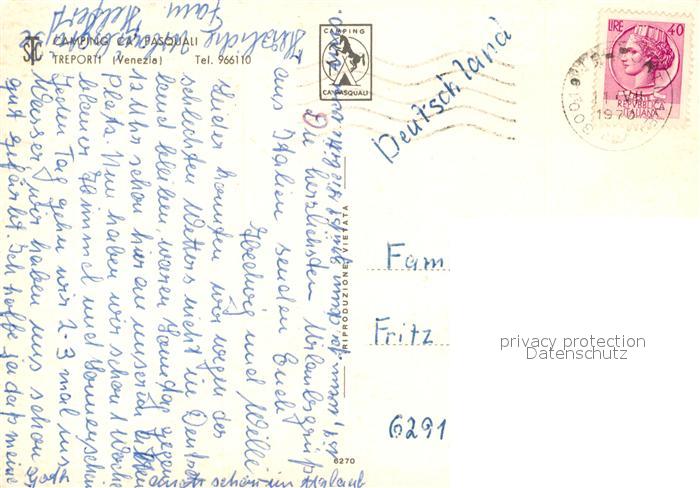 CAMPING CA' PASQUALI
TREPORTI (Venezia) Tel. 966110
CAMPING
CA' PASQUALI
LIRE 40
REPVBBLICA
ITALIANA
1970
Deutschland
Die herzlichsten Urlaubsgrüße
aus Italien senden Euch
Hedwig und Willi
Leider konnten wir wegen des
schlechten Wetters nicht in Deutsch
land bleiben, waren Samstag gegen
12 Uhr schon hier an unserem alten
Platz. Nun haben wir schon 1 Woche
blauer Himmel und Sonnenschein
Jeden Tag gehn wir 2-3 mal ins
Wasser, wir haben uns schon
gut gefärbt. Ich hoffe ja daß meine
auch schon im Urlaub
Herzliche Grüße
Fam.
RIPRODUZIONE VIETATA
6270
Fam
Fritz
6291
privacy protection
Datenschutz